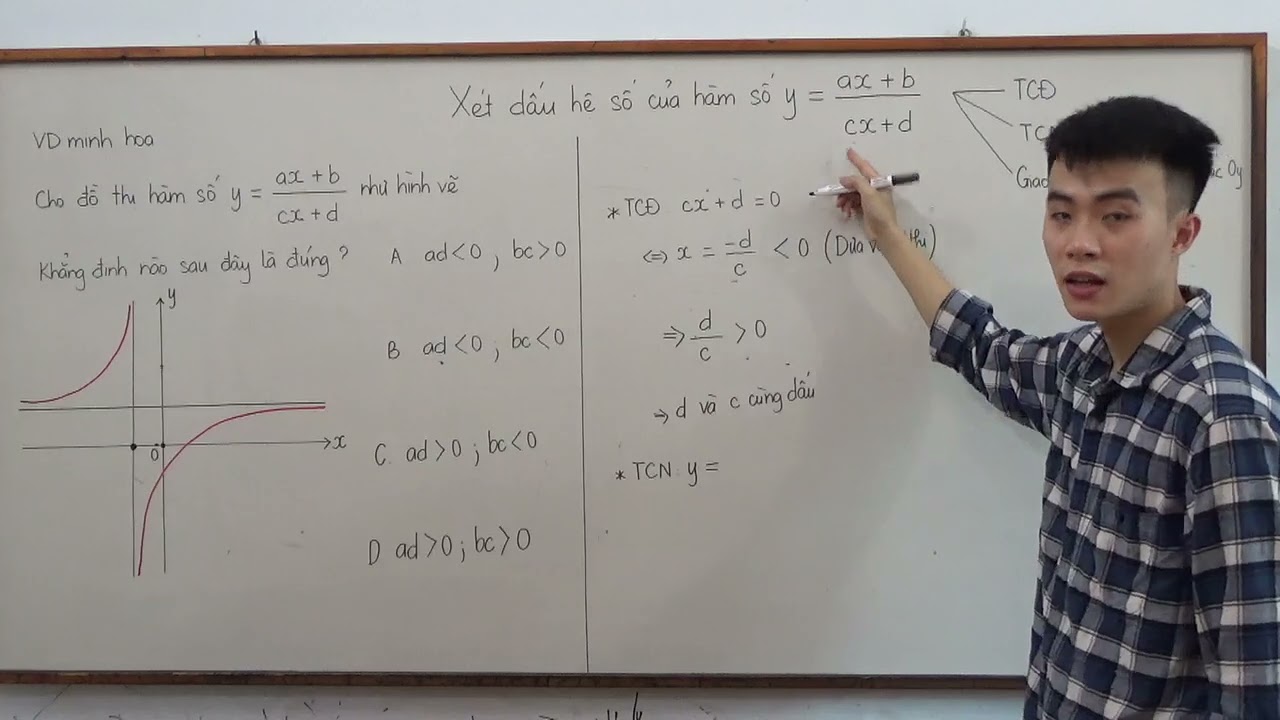 Xét dấu hệ số của hàm số y = (ax + b)/(cx + d)
TCĐ
VD minh hoạ
Cho đồ thị hàm số y = (ax + b)/(cx + d) như hình vẽ
Khẳng định nào sau đây là đúng?
A ad < 0 ; bc > 0
B ad < 0 ; bc < 0
C. ad > 0 ; bc < 0
D ad > 0 ; bc > 0
y
x
0
* TCĐ cx + d = 0
⇔ x = -d/c < 0 (Dựa
⇒ d/c > 0
⇒ d và c cùng dấu
* TCN: y =
Oy